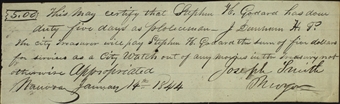 $5.00 This may certify that Stephen H. Godard has done
duty five days as policeman - J Dunham H. P.
The city Treasurer will pay Stephen H. Godard the sum of five dollars
for services as a City Watch out of any monies in the treasury not
otherwise Appropriated Joseph Smith
Nauvoo January 14th 1844 Mayor